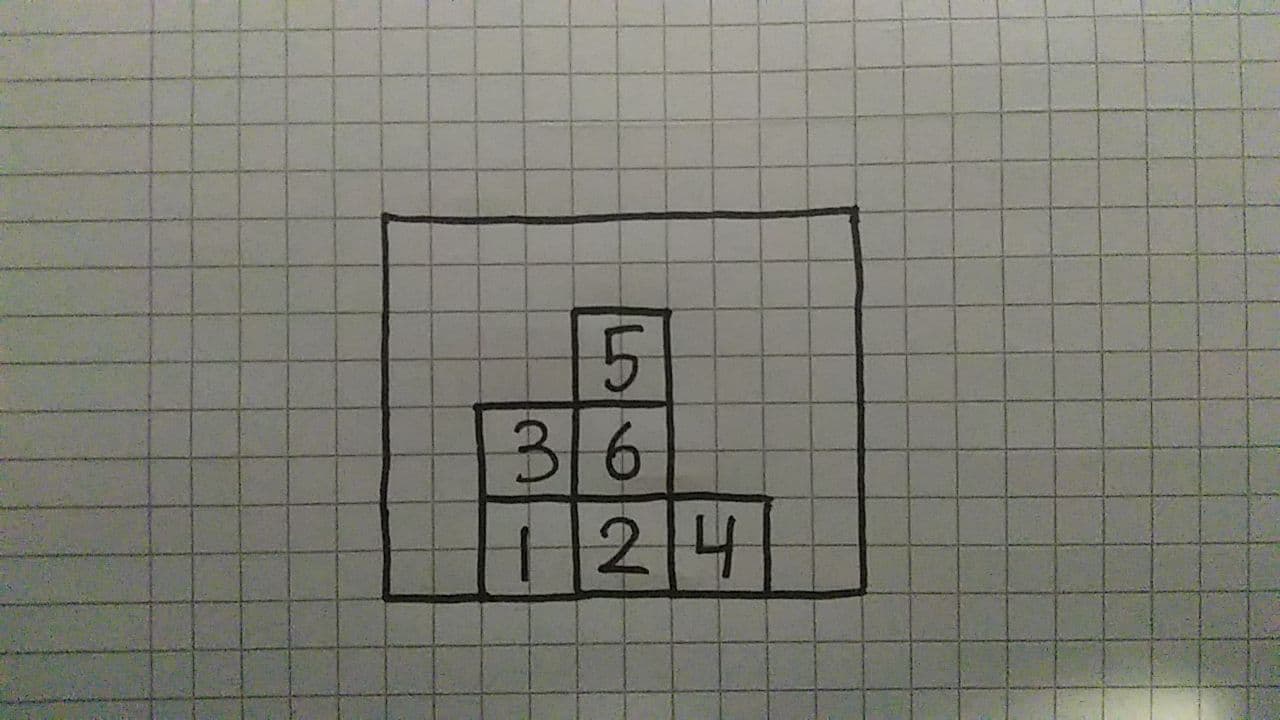 5
3 6
1 2 4